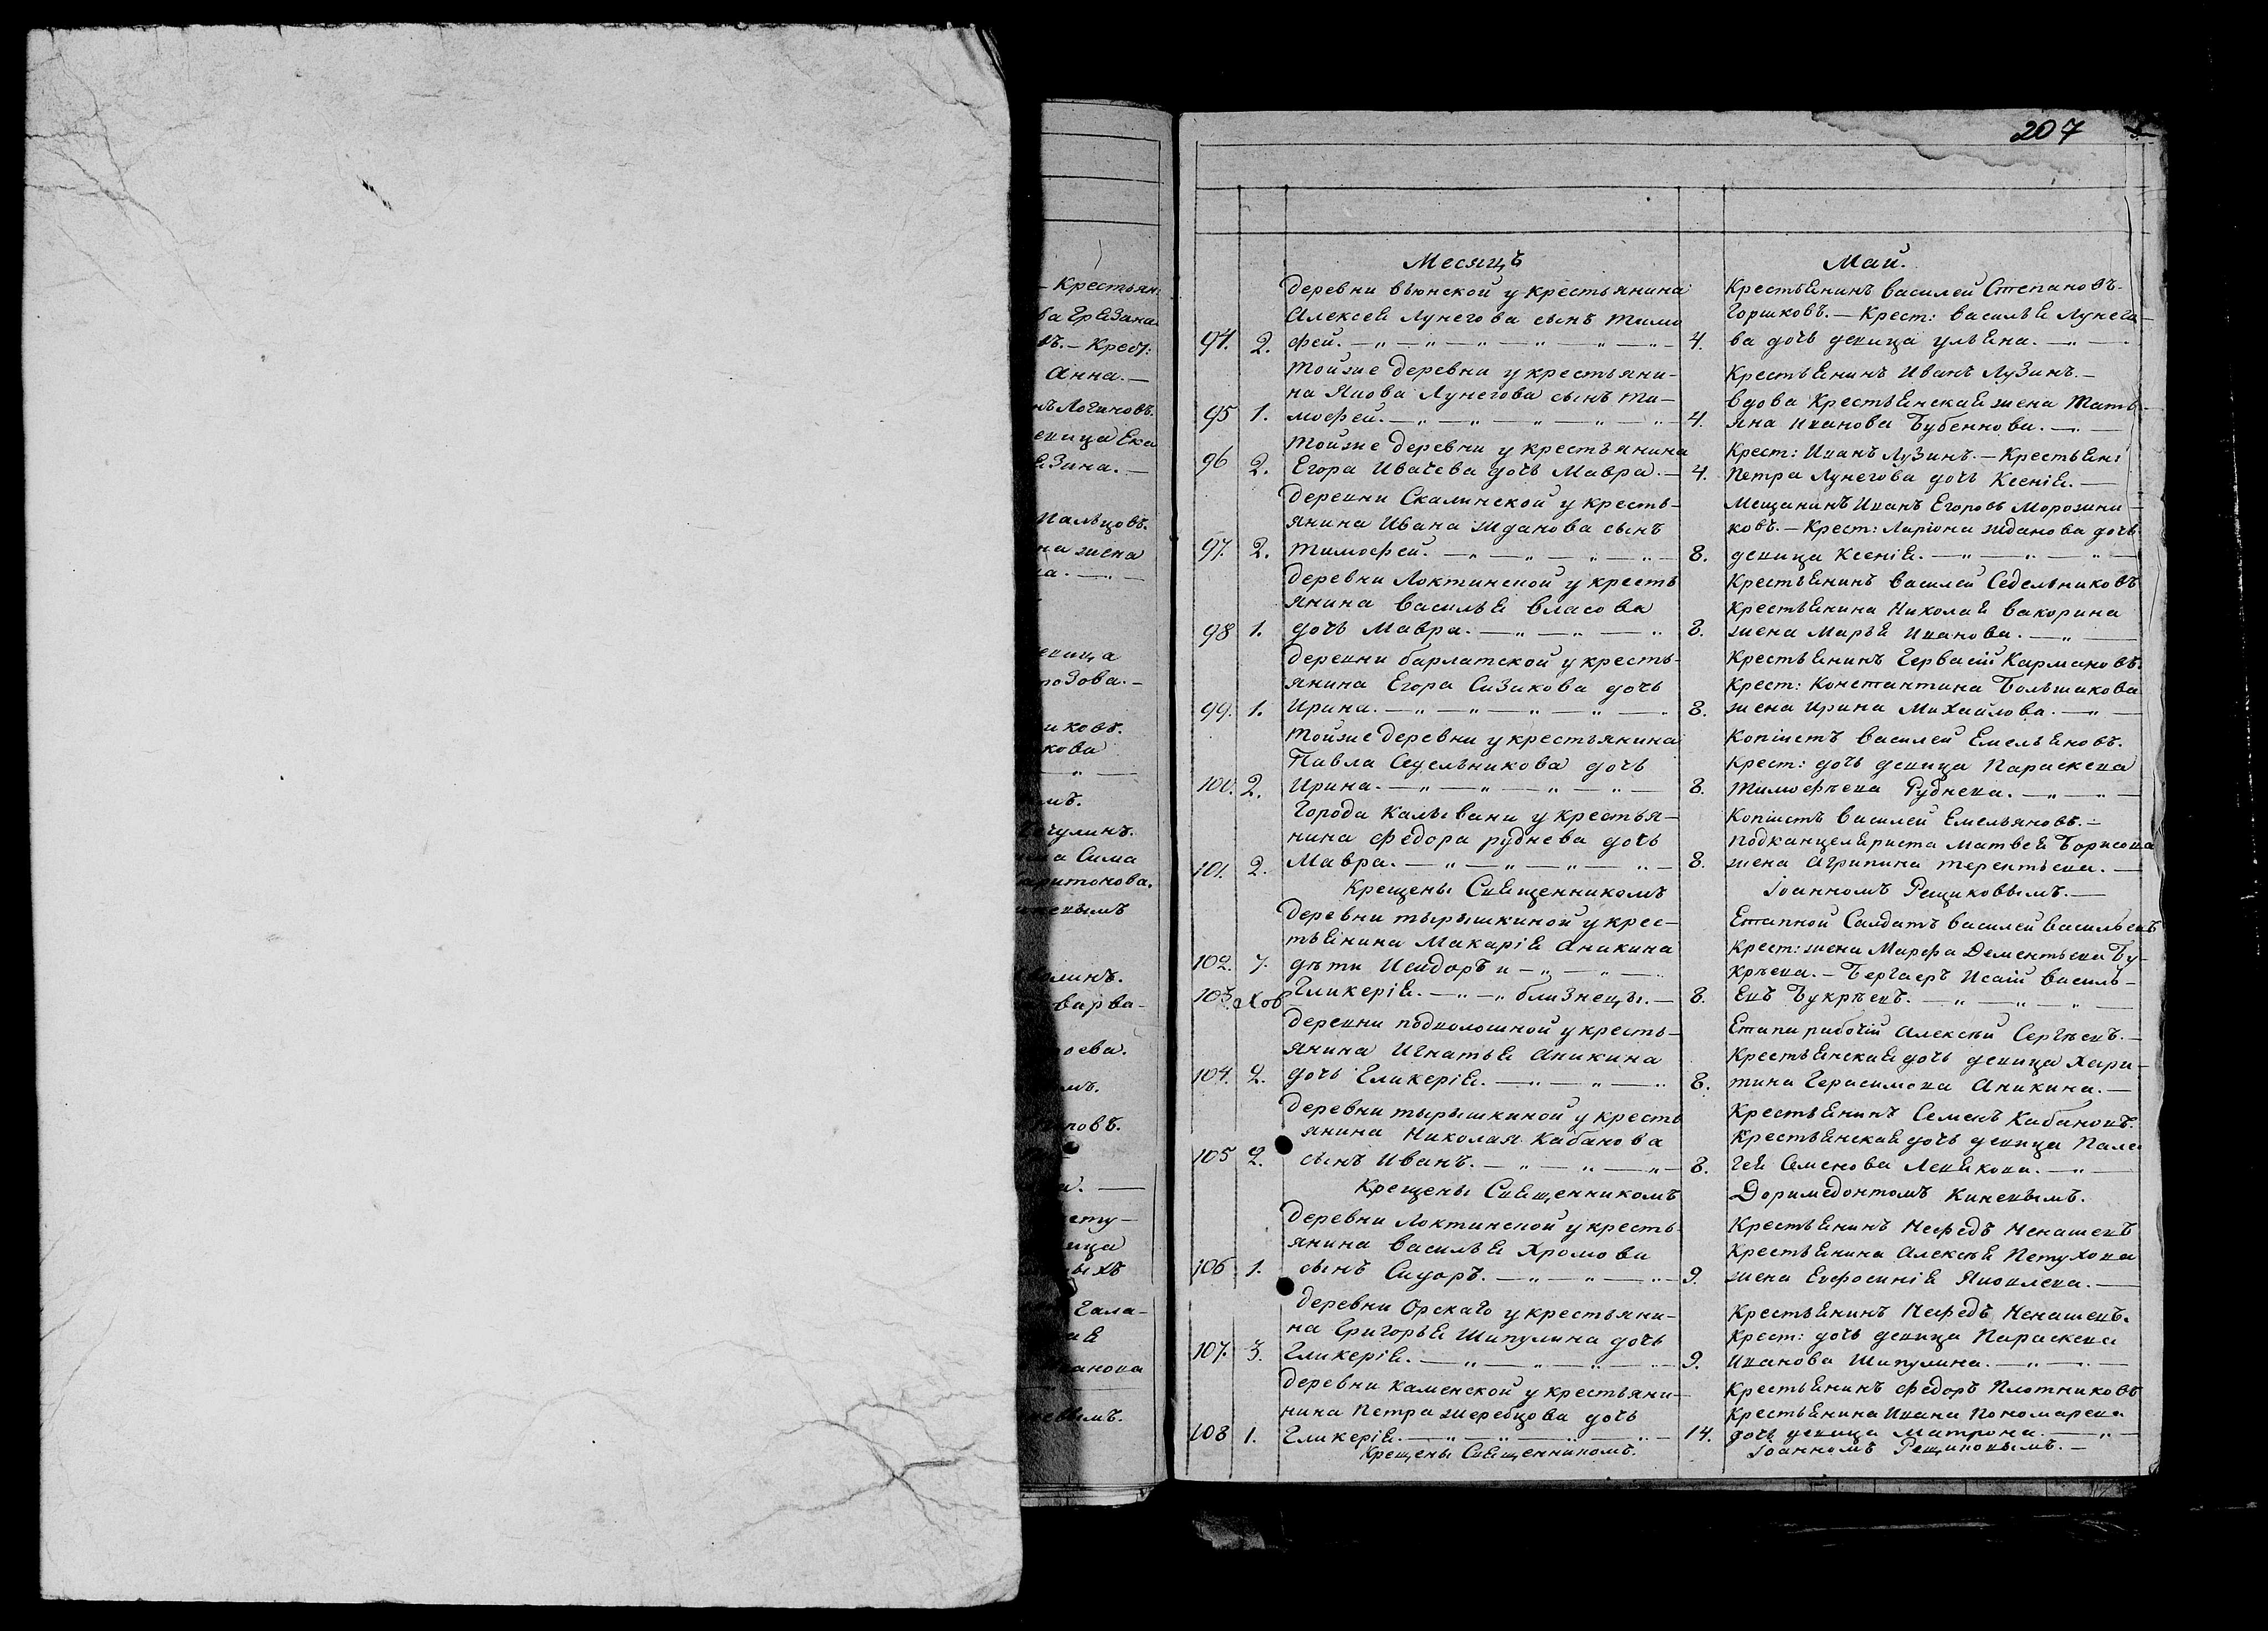 207
Месяцъ
Май.
деревни вьюнской у крестьянина
Алексея Лунегова сынъ Тимо
94. 2. фей. 4.
Крестьянинъ василей Степановъ
Горшковъ. — Крест: василья Лунего-
ва дочь девица ульяна.
тойже деревни у крестьяни-
на Якова Лунегова сынъ Ти-
95 1. мофей. 4.
Крестьянинъ Иванъ Лузинъ. —
вдова Крестьянская жена Тать-
яна Иванова Бубеннова.
тойже деревни у крестьянина
96 2. Егора Ивачева дочь Мавра. — 4.
Крест: Иванъ Лузинъ. — Крестьян:
Петра Лунегова дочь Ксенія. —
деревни Скалинской у кресть-
янина Ивана жданова сынъ
97. 2. Тимофей. 8.
Мещанинъ Иванъ Егоровъ Морозни-
ковъ. — Крест: Ларіона жданова дочь
девица Ксенія.
деревни Локтинской у кресть
янина василья власова
98 1. дочь Мавра. 8.
Крестьянинъ василей Седельниковъ
крестьянина Николая вакорина
жена Марья Иванова.
деревни барлатской у кресть-
янина Егора Сизикова дочь
99. 1. Ирина. 8.
Крестьянинъ Гервасій Кармановъ.
Крест: Константина Большакова
жена Ирина Михайлова.
тойже деревни у крестьянина
Павла Седельникова дочь
100. 2. Ирина. 8.
Копіистъ василей Емельяновъ.
Крест: дочь девица Параскева
Тимофеева Руднева.
Города Калывани у крестья-
нина федора руднева дочь
101. 2. Мавра. 8.
Копіистъ василей Емельяновъ. —
подканцеляриста Матвея Борисова
жена Агрипина терентьева. —
Крещены Священникомъ
Іоанномъ Рещиковымъ. —
деревни тырышкиной у крес-
тьянина Макарія Аникина
102. 7. дѣти Исидоръ и
103. Гликерія. близнецы. — 8.
Етапной Салдатъ василей васильевъ
Крест: жена Марфа Дементьева Бу-
крѣева. — Бергаеръ Исаій василь-
евъ Букрѣевъ.
деревни подволошной у кресть-
янина Игнатья Аникина
104. 2. дочь Гликерія. 8.
Етапн рабочій Алексѣй Сергѣевъ. —
Крестьянская дочь девица Хари-
тина Герасимова Аникина. —
деревни тырышкиной у кресть
янина Николая Кабанова
105 2. сынъ Иванъ. 8.
Крестьянинъ Семенъ Кабановъ.
Крестьянская дочь девица Пела
гея Семенова Левякова.
Крещены Священникомъ
Доримедонтомъ Киневымъ.
деревни Локтинской у кресть-
янина василья Хромова
106 1. сынъ Сидоръ. 9.
Крестьянинъ Нефедъ Ненашевъ
Крестьянина Алексѣя Петухова
жена Евфосинія Яковлева. —
деревни Орскаго у крестьяни-
на Григорья Шипулина дочь
107. 3. Гликерія. 9.
Крестьянинъ Нефедъ Ненашевъ.
Крест: дочь девица Параскева
Иванова Шипулина.
деревни каменской у крестьяни-
нина Петра жеребцова дочь
108 1. Гликерія. 14.
Крестьянинъ федоръ Плотниковъ
Крестьянина Ивана Пономарева
дочь девица Матрона.
Крещены Священникомъ.
Іоанномъ Рещиковымъ. —